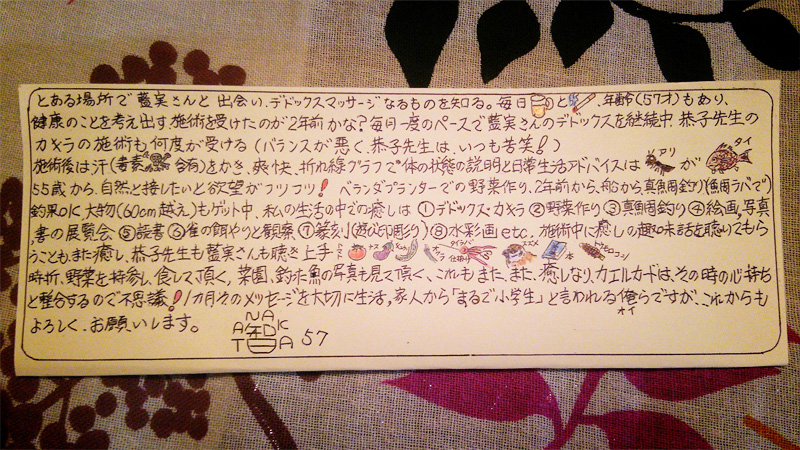 とある場所で藍実さんと出会い、デドックスマッサージなるものを知る。毎日 と 、年齢(57才)もあり、
健康のことを考え出す。施術を受けたのが2年前かな?毎月一度のペースで藍実さんのデドックスを継続中。恭子先生の
カメラの施術も何度か受ける(バランスが悪く、恭子先生は、いつも苦笑!)
施術後は汗(毒素 含有)をかき、爽快、折れ線グラフで体の状態の説明と日常生活アドバイスは アリ が タイ
55歳から、自然と接したいと欲望がフツフツ! ベランダプランターでの野菜作り、2年前から、船から、真鯛釣り(鯛ラバで)
釣果OK 大物(60cm越え)もゲット中、私の生活の中での癒しは ①デドックス・カメラ ②野菜作り ③真鯛釣り ④絵画,写真
,書の展覧会 ⑤読書 ⑥雀の餌やりと観察 ⑦篆刻(遊び印彫り) ⑧水彩画etc. 施術中に癒しの趣味話を聴いてもら
うこともまた癒し、恭子先生も藍実さんも聴き上手 トマト ナス オクラ タイラバ 仕掛け スズメ 本 トウモロコシ
時折、野菜を持参し、食して頂く、菜園、釣った魚の写真も見て頂く、これもまた、また、癒しなり、カエルカードは、その時の心持ち
と整合するので不思議!1カ月分のメッセージを大切に生活,家人から「まるで小学生」と言われる俺らですが、これからも
オイ
よろしく、お願いします。
57